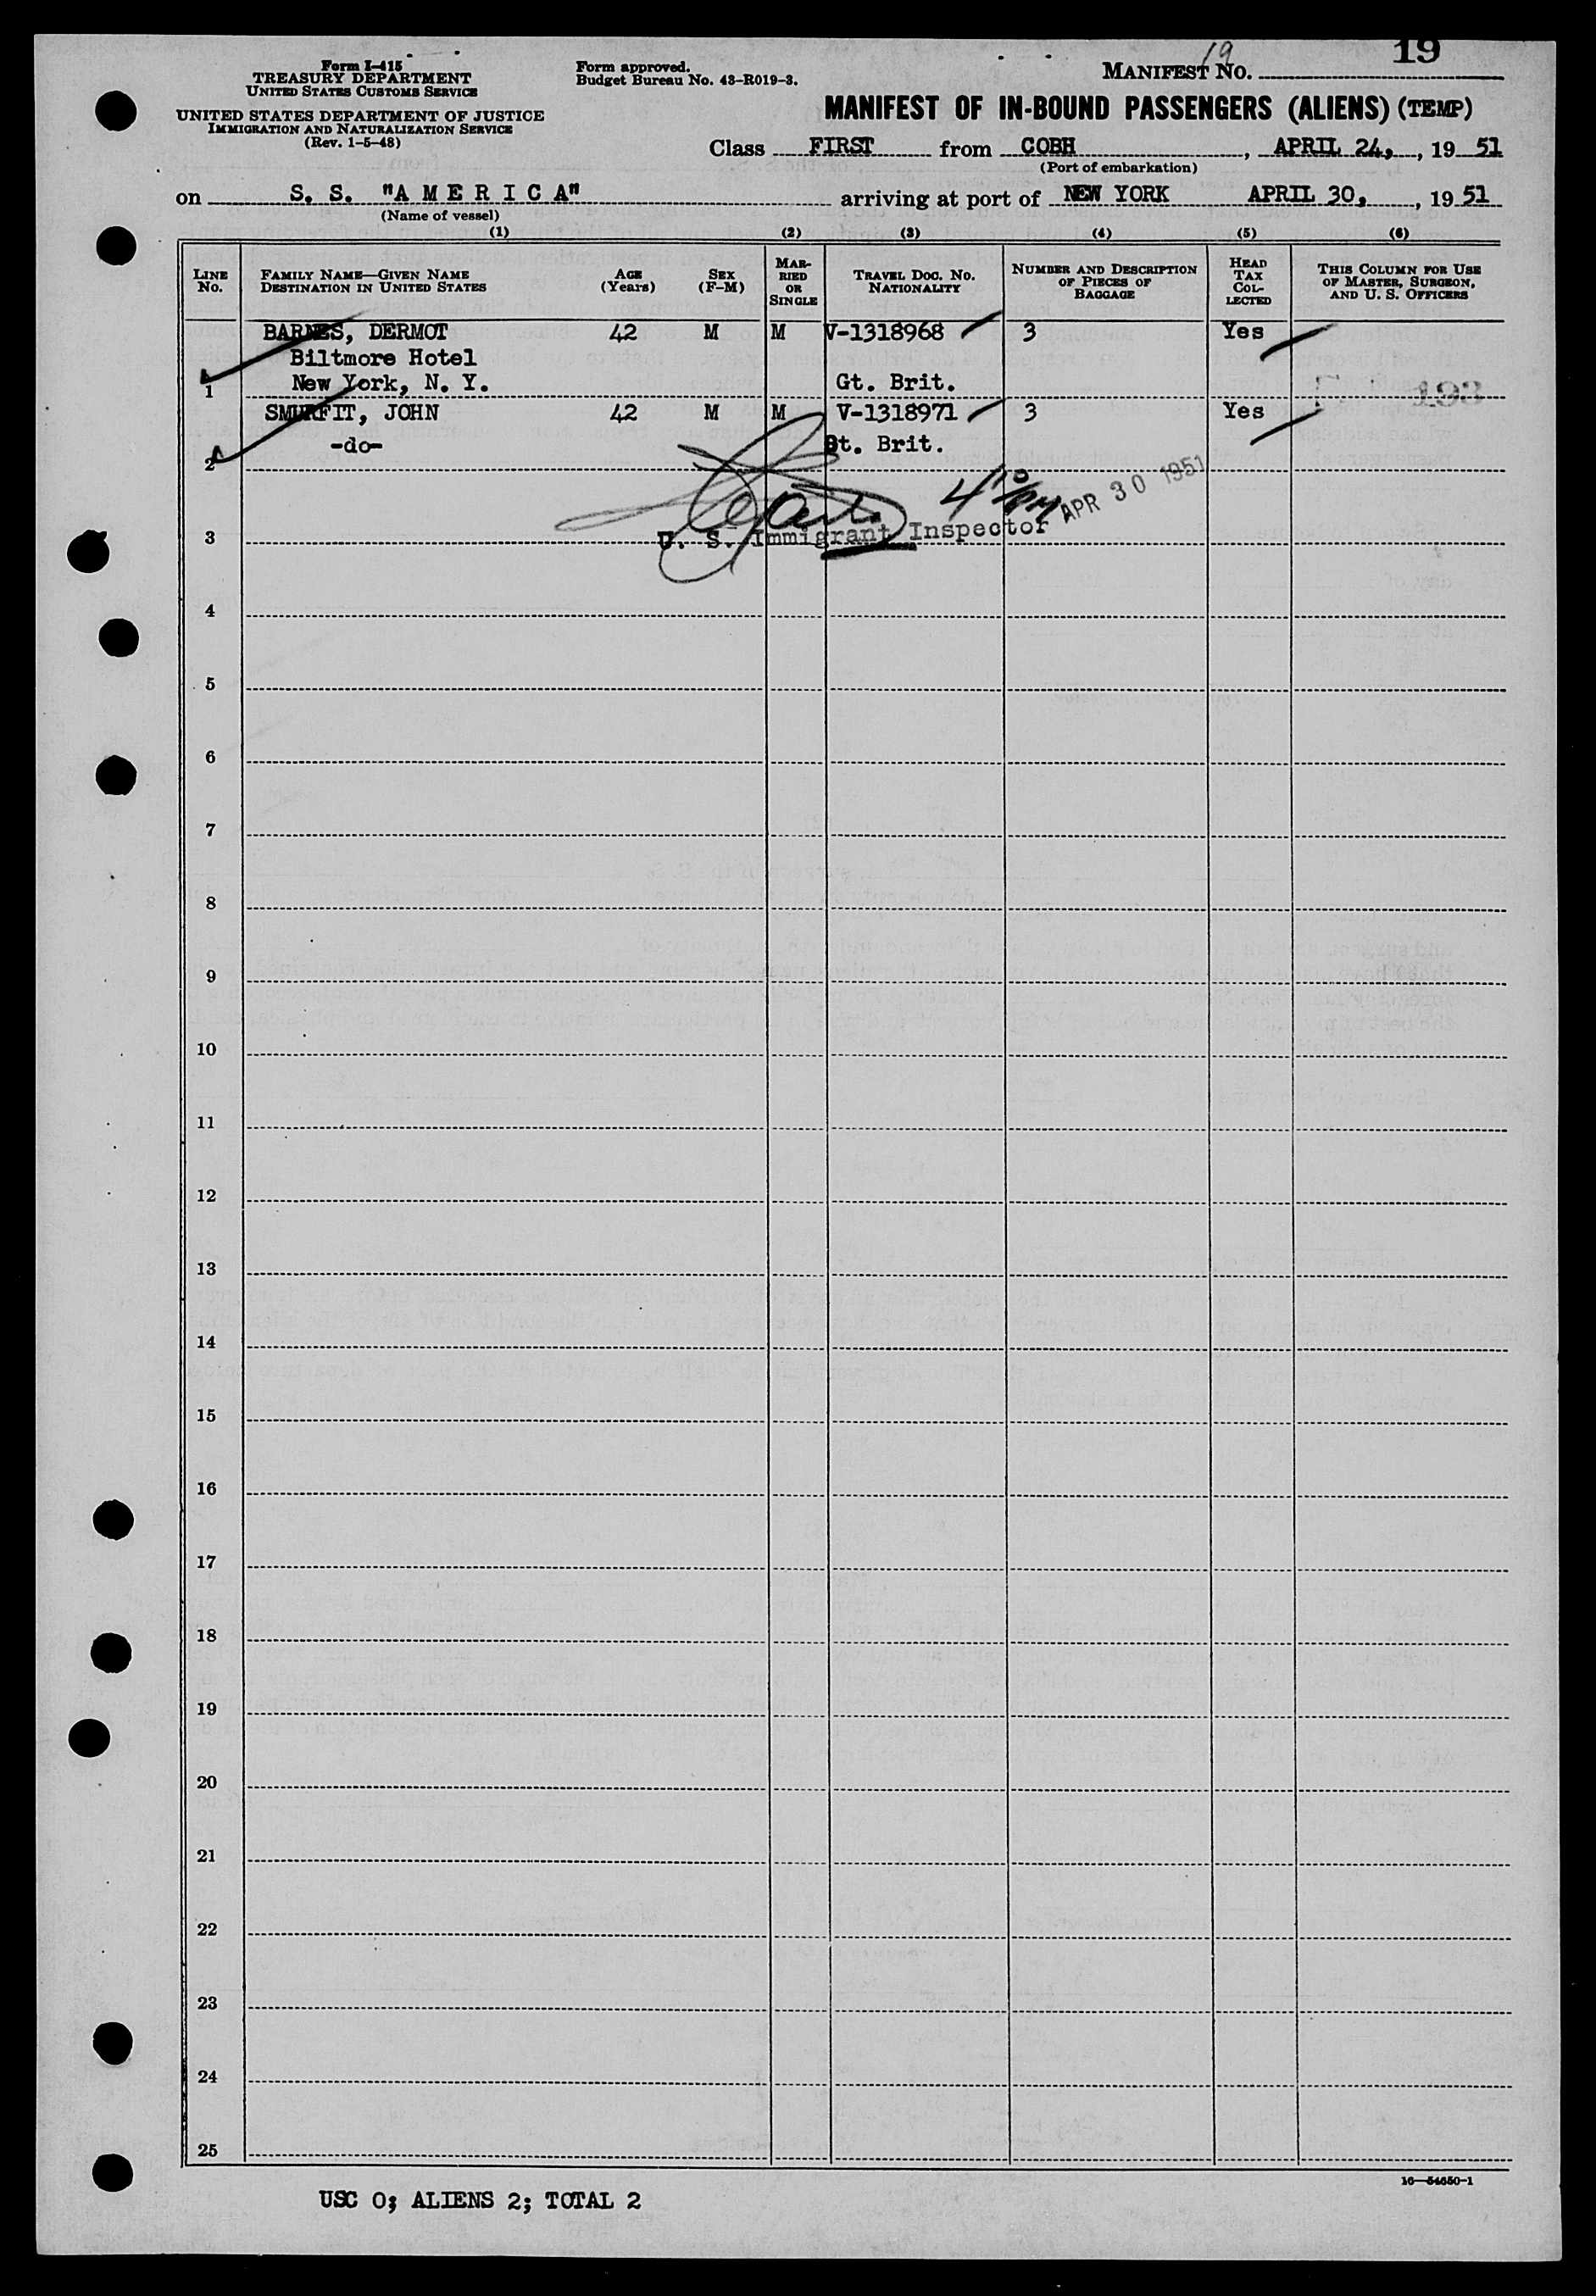 Form I-415
TREASURY DEPARTMENT
UNITED STATES CUSTOMS SERVICE
UNITED STATES DEPARTMENT OF JUSTICE
IMMIGRATION AND NATURALIZATION SERVICE
(Rev. 1-5-48)
Form approved.
Budget Bureau No. 43-R019-3.
19
19
MANIFEST NO.
MANIFEST OF IN-BOUND PASSENGERS (ALIENS) (TEMP)
Class FIRST from COBH, APRIL 24, , 19 51
(Port of embarkation)
on S. S. "A M E R I C A" arriving at port of NEW YORK APRIL 30, , 19 51
(Name of vessel)
(1) (2) (3) (4) (5) (6)
LINE No.
FAMILY NAME—GIVEN NAME
DESTINATION IN UNITED STATES
AGE (Years)
SEX (F-M)
MARRIED OR SINGLE
TRAVEL DOC. NO.
NATIONALITY
NUMBER AND DESCRIPTION OF PIECES OF BAGGAGE
HEAD TAX COLLECTED
THIS COLUMN FOR USE OF MASTER, SURGEON, AND U. S. OFFICERS
BARNES, DERMOT 42 M M V-1318968 3 Yes
Biltmore Hotel
1 New York, N. Y. Gt. Brit.
193
SMURFIT, JOHN 42 M M V-1318971 3 Yes
-do- Gt. Brit.
2
4 10 PM APR 30 1951
3 U. S. Immigrant Inspector
4
5
6
7
8
9
10
11
12
13
14
15
16
17
18
19
20
21
22
23
24
25
16—54650-1
USC 0; ALIENS 2; TOTAL 2